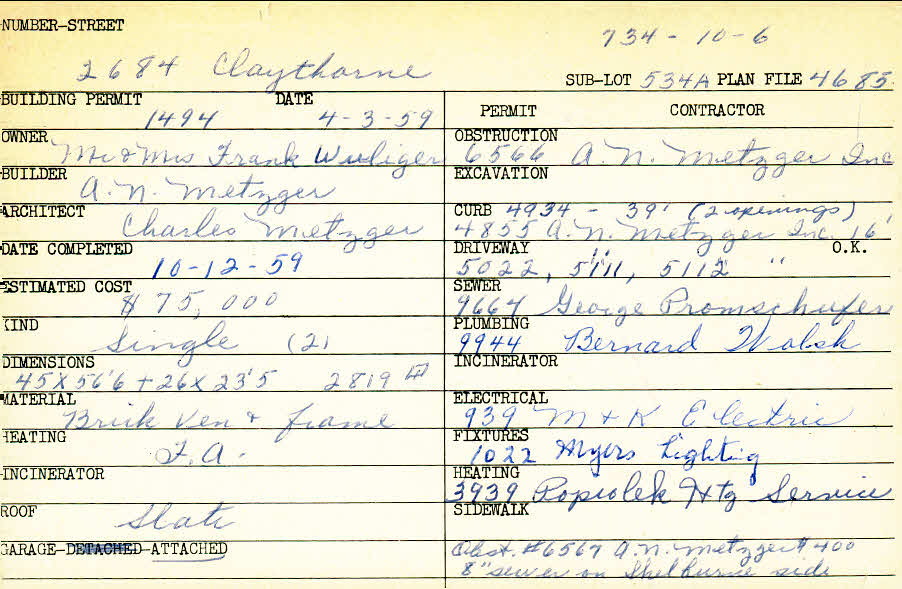 NUMBER-STREET
734-10-6
2684 Claythorne
SUB-LOT 534A PLAN FILE 4685
BUILDING PERMIT DATE
1494 4-3-59
OWNER
Mr & Mrs Frank Wuliger
BUILDER
A. N. Metzger
ARCHITECT
Charles Metzger
DATE COMPLETED
10-12-59
ESTIMATED COST
$75,000
KIND
Single (2)
DIMENSIONS
45 x 56'6 + 26 x 23'5 2819
MATERIAL
Brick Ven & frame
HEATING
F.A.
INCINERATOR
ROOF
Slate
GARAGE-DETACHED-ATTACHED
PERMIT CONTRACTOR
OBSTRUCTION
6566 A. N. Metzger Inc
EXCAVATION
CURB 4934 - 39' (2 openings)
4855 A. N. Metzger Inc. 16'
DRIVEWAY O.K.
5022, 5111, 5112 "
SEWER
9667 George
PLUMBING
9944 Bernard Walsh
INCINERATOR
ELECTRICAL
939 M & K Electric
FIXTURES
1022 Myers Lighting
HEATING
3939 Popiolek Htg Service
SIDEWALK
Obst. #6567 A. N. Metzger $400
8" sewer on Shelburne side